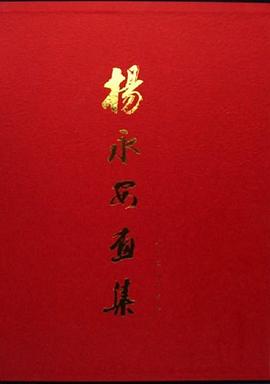 楊永安畫集